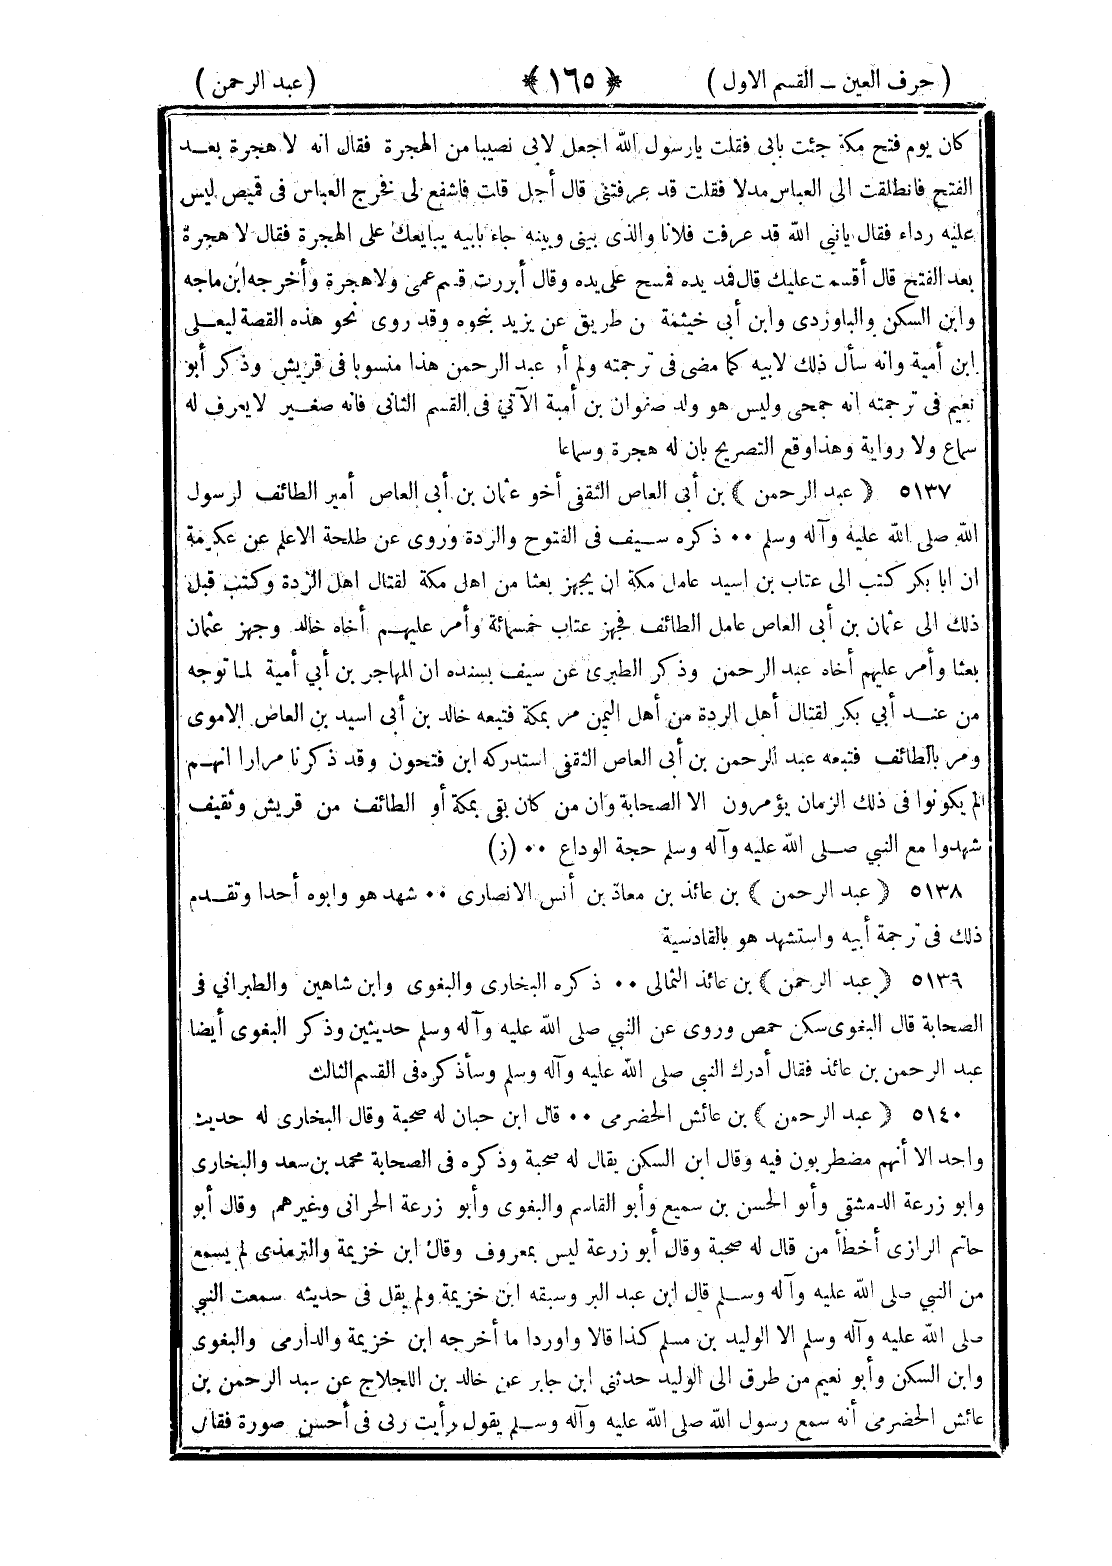 ( حرف العين – القسم الاول ) ﴿ ١٦٥ ﴾ ( عبد الرحمن )
كان يوم فتح مكة جئت بابى فقلت يارسول الله اجعل لابى نصيبا من الهجرة فقال انه لا هجرة بعد
الفتح فانطلقت الى العباس مدلا فقلت قد عرفتنى قال أجل قلت فاشفع لى فخرج العباس فى قميص ليس
عليه رداء فقال يانبي الله قد عرفت فلانا والذى بينى وبينه جاء بابيه يبايعك على الهجرة فقال لا هجرة
بعد الفتح قال أقسمت عليك قال فمد يده فمسح على يده وقال أبررت قسم عمى ولا هجرة وأخرجه ابن ماجه
وابن السكن والباوردى وابن أبي خيثمة ن طريق عن يزيد بنحوه وقد روى نحو هذه القصة ليعلى
ابن أمية وانه سأل ذلك لابيه كما مضى فى ترجمته ولم أر عبد الرحمن هذا منسوبا فى قريش وذكر أبو
نعيم فى ترجمته انه جمحى وليس هو ولد صفوان بن أمية الآتي فى القسم الثانى فانه صغير لا يعرف له
سماع ولا رواية وهذا وقع التصريح بان له هجرة وسماعا
٥١٣٧ ﴿ عبد الرحمن ﴾ بن أبى العاص الثقفى أخو عثمان بن أبى العاص أمير الطائف لرسول
الله صلى الله عليه وآله وسلم ٠٠ ذكره سيف فى الفتوح والردة وروى عن طلحة الاعلم عن عكرمة
ان ابا بكر كتب الى عتاب بن اسيد عامل مكة ان يجهز بعثا من اهل مكة لقتال اهل الردة وكتب قبل
ذلك الى عثمان بن أبى العاص عامل الطائف فجهز عتاب خمسمائة وأمر عليهم أخاه خالد وجهز عثمان
بعثا وأمر عليهم أخاه عبد الرحمن وذكر الطبرى عن سيف بسنده ان المهاجر بن أبي أمية لما توجه
من عند أبي بكر لقتال أهل الردة من أهل اليمن مر بمكة فتبعه خالد بن أبى اسيد بن العاص الاموى
ومر بالطائف فتبعه عبد الرحمن بن أبى العاص الثقفى استدركه ابن فتحون وقد ذكرنا مرارا انهم
لم يكونوا فى ذلك الزمان يؤمرون الا الصحابة وان من كان بقى بمكة أو الطائف من قريش وثقيف
شهدوا مع النبي صلى الله عليه وآله وسلم حجة الوداع ٠٠ (ز)
٥١٣٨ ﴿ عبد الرحمن ﴾ بن عائذ بن معاذ بن أنس الانصارى ٠٠ شهد هو وابوه أحدا وتقدم
ذلك فى ترجمة أبيه واستشهد هو بالقادسية
٥١٣٩ ﴿ عبد الرحمن ﴾ بن عائذ الثمالى ٠٠ ذكره البخارى والبغوى وابن شاهين والطبراني فى
الصحابة قال البغوى سكن حمص وروى عن النبي صلى الله عليه وآله وسلم حديثين وذكر البغوى أيضا
عبد الرحمن بن عائذ فقال أدرك النبي صلى الله عليه وآله وسلم وسأذكره فى القسم الثالث
٥١٤٠ ﴿ عبد الرحمن ﴾ بن عائش الحضرمى ٠٠ قال ابن حبان له صحبة وقال البخارى له حديث
واحد الا أنهم مضطربون فيه وقال ابن السكن يقال له صحبة وذكره فى الصحابة محمد بن سعد والبخارى
وابو زرعة الدمشقى وأبو الحسن بن سميع وأبو القاسم والبغوى وأبو زرعة الحرانى وغيرهم وقال أبو
حاتم الرازى أخطأ من قال له صحبة وقال أبو زرعة ليس بمعروف وقال ابن خزيمة والترمذى لم يسمع
من النبي صلى الله عليه وآله وسلم قال ابن عبد البر وسبقه ابن خزيمة ولم يقل فى حديثه سمعت النبي
صلى الله عليه وآله وسلم الا الوليد بن مسلم كذا قالا واوردا ما أخرجه ابن خزيمة والدارمى والبغوى
وابن السكن وأبو نعيم من طرق الى الوليد حدثني ابن جابر عن خالد بن اللجلاج عن عبد الرحمن بن
عائش الحضرمى أنه سمع رسول الله صلى الله عليه وآله وسلم يقول رأيت ربى فى أحسن صورة فقال